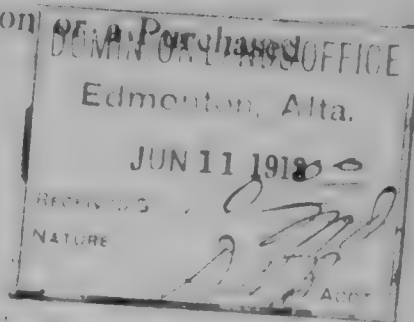 on of a Purchased
DOMINION LANDS OFFICE
Edmonton, Alta.
JUN 11 1918
NATURE
ACCT